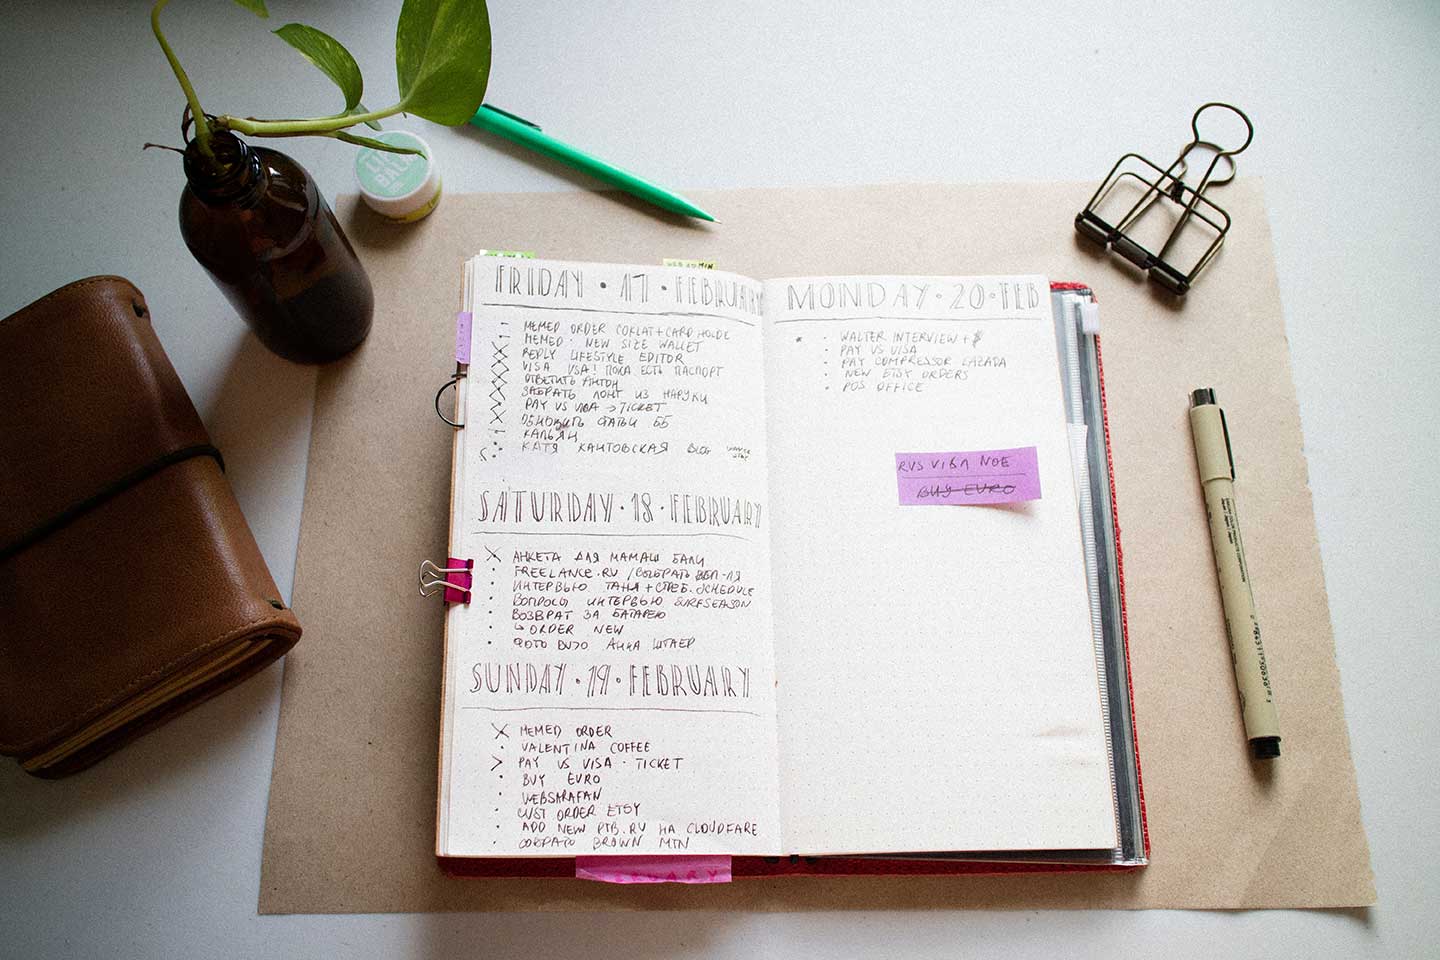 LIP BALM
FRIDAY · 17 · FEBRUARY
MEMED ORDER COKLAT + CARD HOLDE
MEMED · NEW SIZE WALLET
REPLY LIFESTYLE EDITOR
VISA VSA! ПОКА ЕСТЬ ПАСПОРТ
ОТВЕТИТЬ АНТОН
ЗАБРАТЬ ЛОНГ ИЗ НАРУКИ
PAY VS VISA → TICKET
ОБНОВИТЬ СТАТЬИ ББ
КАЛЬЯН
КАТЯ КАИТОВСКАЯ BLOG
SATURDAY · 18 · FEBRUARY
АНКЕТА ДЛЯ МАМАШ БАЛИ
FREELANCE.RU / ВЫБРАТЬ
ИНТЕРВЬЮ ТАНЯ + SCHEDULE
ВОПРОСЫ ИНТЕРВЬЮ SURFSEASON
ВОЗВРАТ ЗА БАТАРЕЮ
↳ ORDER NEW
ФОТО ВИЗО АННА ШТАЕР
SUNDAY · 19 · FEBRUARY
MEMED ORDER
VALENTINA COFFEE
PAY US VISA · TICKET
BUY EURO
WEBSARAFAN
CUST ORDER ETSY
ADD NEW PTB.RU НА CLOUDFARE
СОБРАТЬ BROWN MTN
MONDAY · 20 · FEB
WALTER INTERVIEW + $
PAY VS VISA
PAY COMPRESSOR LAZADA
NEW ETSY ORDERS
POS OFFICE
RUS VISA NOE
BUY EURO